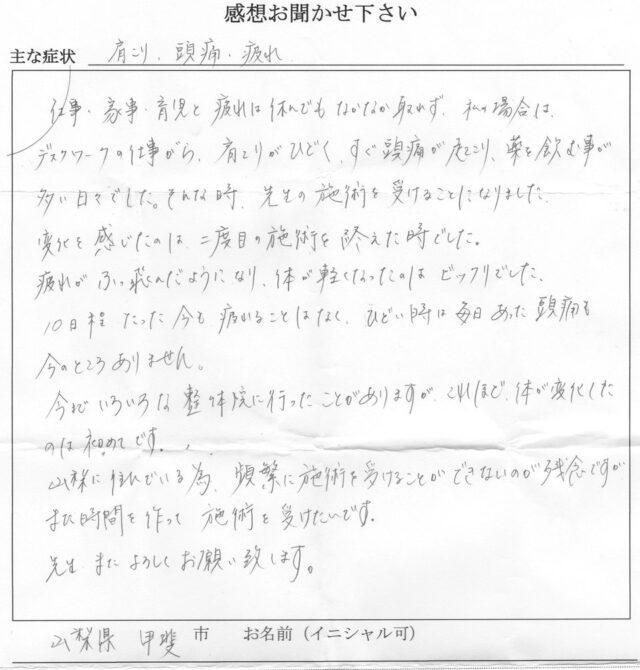 感想お聞かせ下さい
主な症状 肩こり、頭痛・疲れ
仕事・家事・育児と疲れは休んでもなかなか取れず、私の場合は、
デスクワークの仕事がら、肩こりがひどく、すぐ頭痛が起こり、薬を飲む事が
多い日々でした。そんな時、先生の施術を受けることになりました。
変化を感じたのは、二度目の施術を終えた時でした。
疲れがふっ飛んだようになり、体が軽くなったのはビックリでした。
10日程たった今も疲かることはなく、ひどい時は毎日あった頭痛も
今のところありません。
今までいろいろな整体院に行ったことがありますが、これほど、体が変化した
のは初めてです。
山梨に住んでいる為、頻繁に施術を受けることができないのが残念ですが
また時間を作って施術を受けたいです。
先生、またよろしくお願い致します。
山梨県 甲斐 市 お名前(イニシャル可)